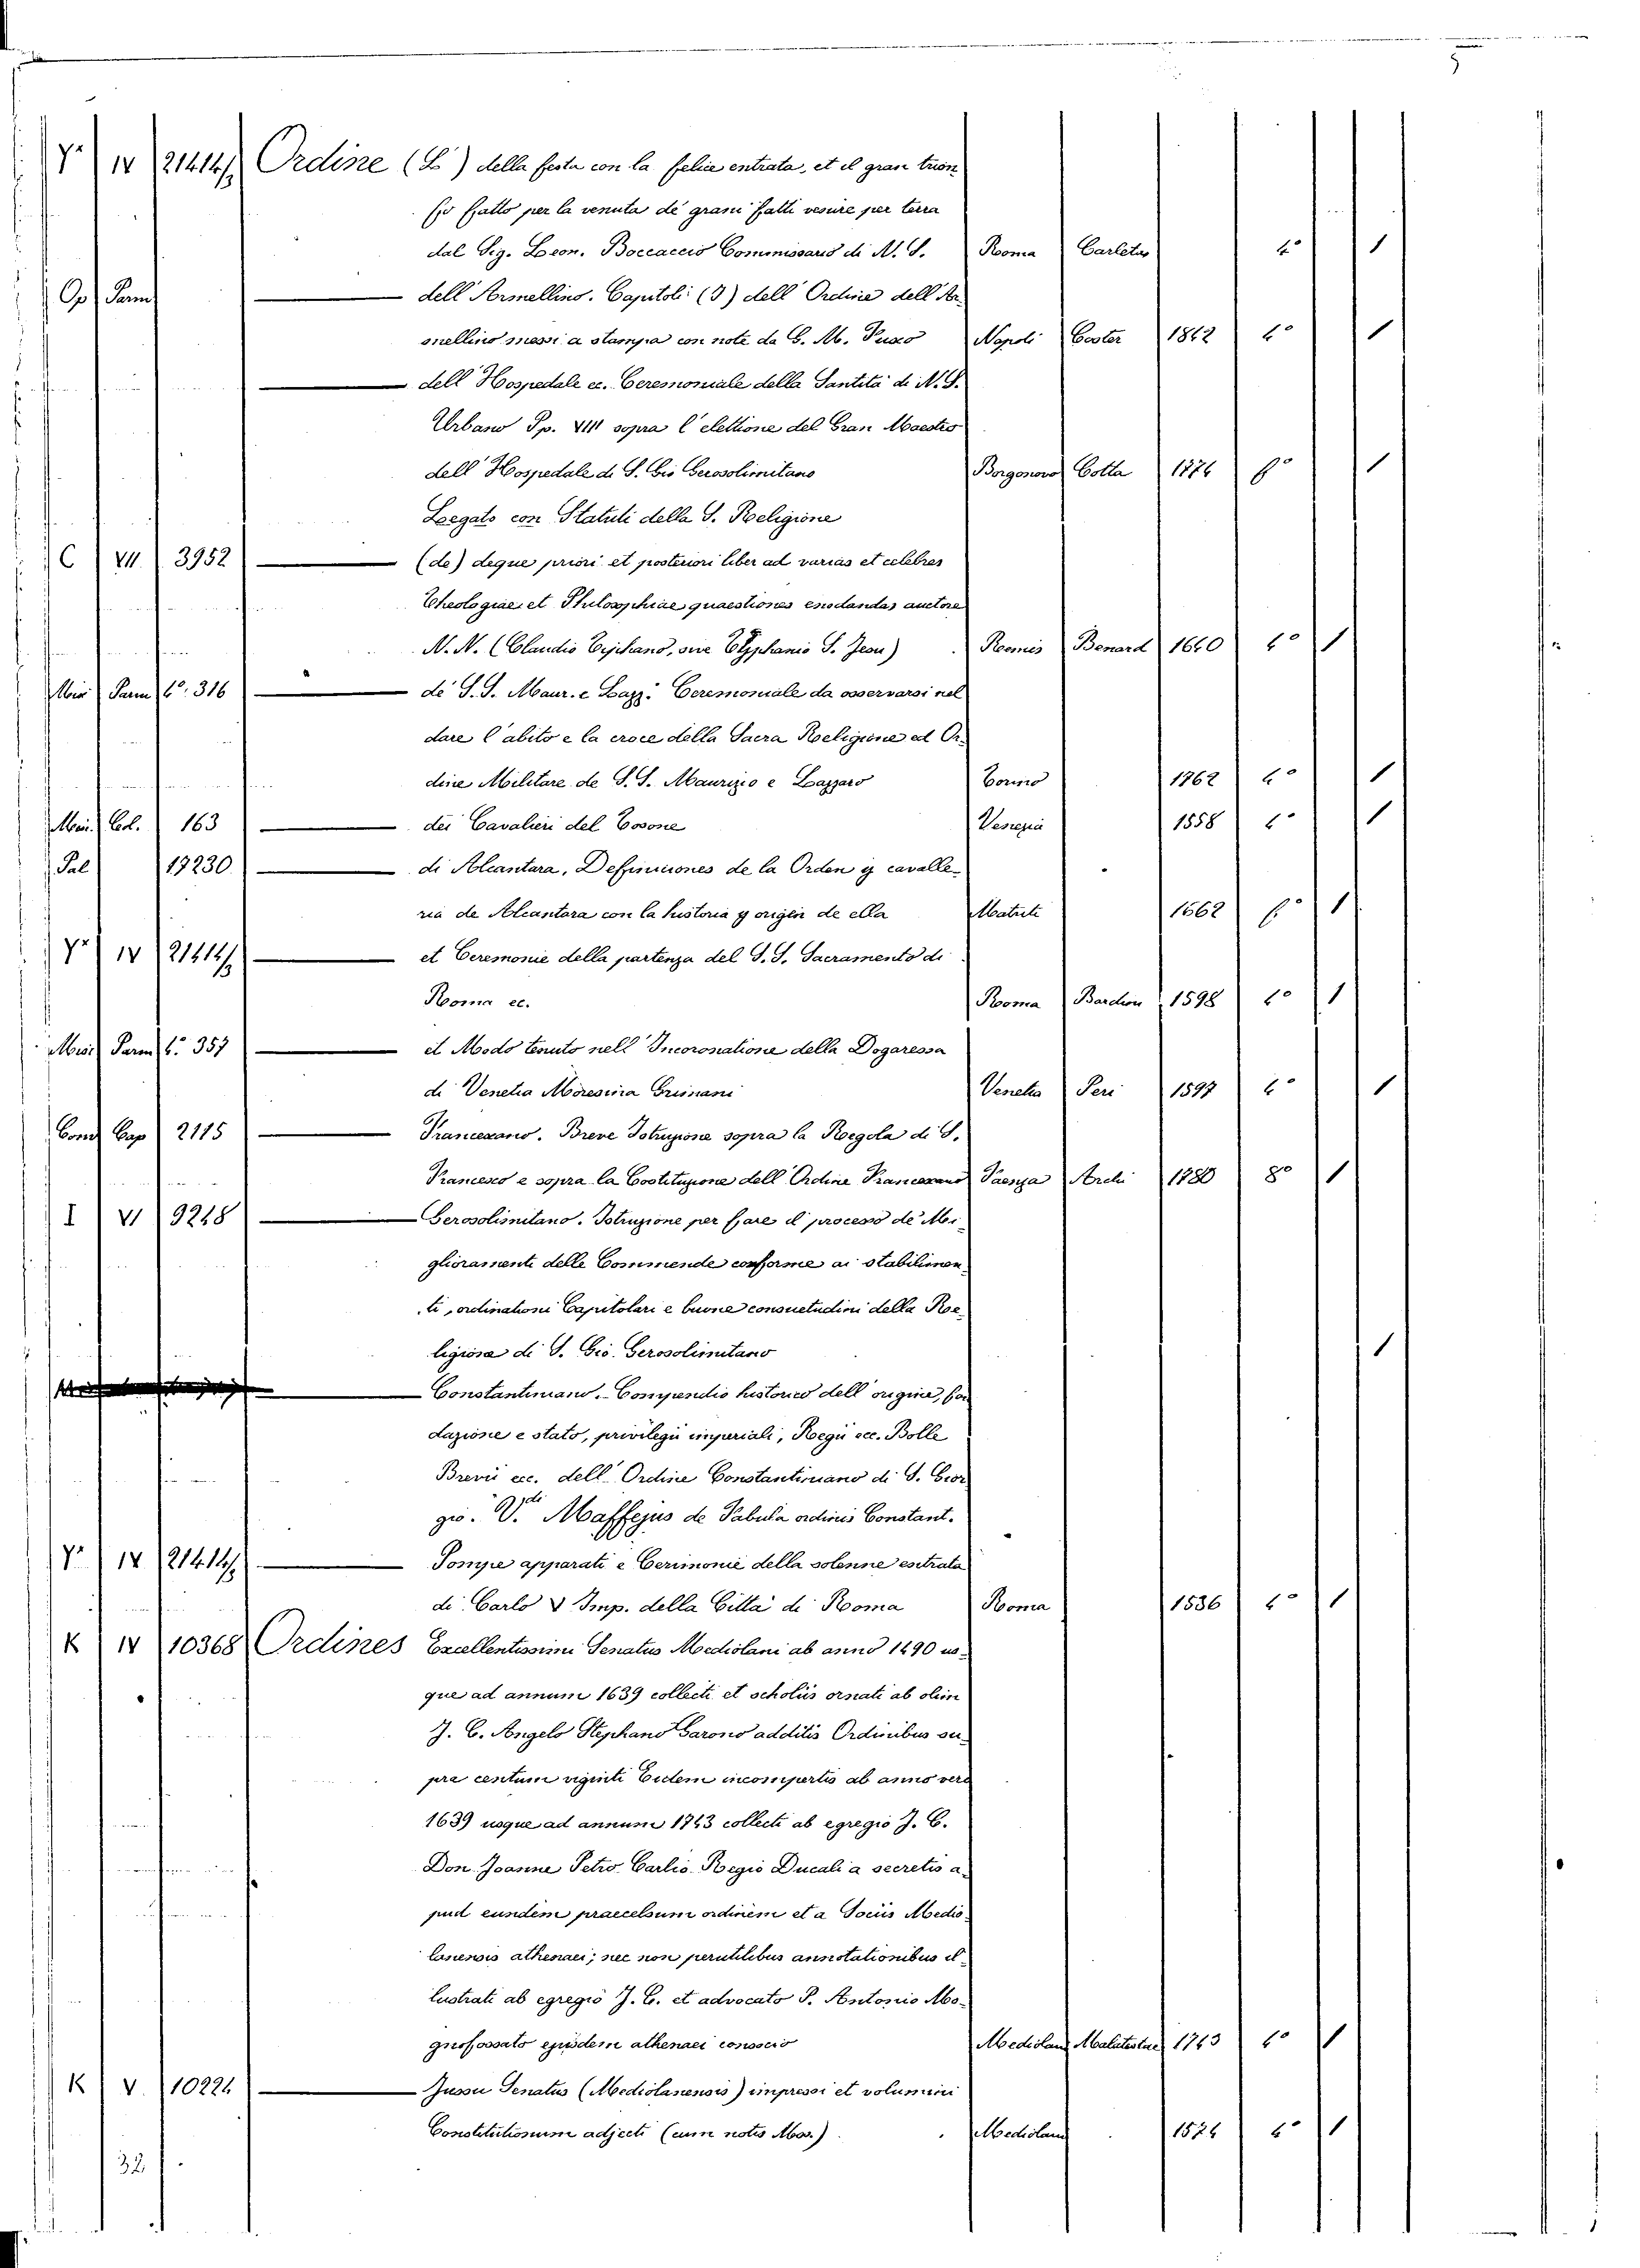 5
Yª IV 21414/3 Ordine (L') della festa con la felice entrata, et il gran trion
fo fatto per la venuta de grani fatti venire per terra
dal Sig. Leon. Boccaccio Commissario di N. S. Roma Carletus 4º 1
Op Parm dell' Armellino. Capitoli (I) dell' Ordine dell' Ar-
mellino messi a stampa con note da G. M. Fusco Napoli Coster 1842 4º 1
dell' Hospedale ec. Ceremoniale della Santità di N. S.
Urbano Pp. VIII sopra l'elettione del Gran Maestro
dell' Hospedale di S. Gio Gerosolimitano Borgonovo Cotta 1674 fº 1
Legato con Statuti della S. Religione
C VII. 3952 (de) deque priori et posteriori liber ad varias et celebres
Theologiae et Philosophiae quaestiones enodandas auctore
N. N. (Claudio Tiphano, sive Typhanio S. Jesu) Remis Benard 1640 4º 1
Misc Parm 4º. 316 de' S. S. Maur. e Lazz. Ceremoniale da osservarsi nel
dare l'abito e la croce della Sacra Religione ed Or-
dine Militare de S. S. Maurizio e Lazzaro Torino 1762 4º 1
Misc. Col. 163 dei Cavalieri del Tosone Venezia 1558 4º 1
Pal 17230 di Alcantara, Deffiniciones de la Orden y cavalle-
ria de Alcantara con la historia y origen de ella Matriti 1662 fº 1
Yª IV 21414/3 et Ceremonie della partenza del S. S. Sacramento di
Roma ec. Roma Bardion 1598 4º 1
Misc Parm 4º. 357 et Modo tenuto nell' Incoronatione della Dogaressa
di Venetia Moresina Grimani Venetia Peri 1597 4º 1
Conv Cap 2115 Francescano. Breve Istruzione sopra la Regola di S.
Francesco e sopra la Costituzione dell' Ordine Francescano Faenza Archi 1780 8º 1
I VI 9248 Gerosolimitano. Istruzione per fare il processo de' Mi-
glioramenti delle Commende conforme ai stabilimen-
ti, ordinationi Capitolari e buone consuetudini della Re-
ligiosa di S. Gio. Gerosolimitano 1
Constantiniano. Compendio historico dell' origine, fon
dazione e stato, privilegii imperiali, Regii ecc. Bolle
Brevii ecc. dell' Ordine Constantiniano di S. Gior
gio. V.di Maffejus de Fabula ordinis Constant.
Yª IV 21414/3 Pompe apparati e Cerimonie della solenne entrata
di Carlo V Imp. della Città di Roma Roma 1536 4º 1
K IV 10368 Ordines Excellentissimi Senatus Mediolani ab anno 1490 us-
que ad annum 1639 collecti et scholiis ornati ab olim
J. C. Angelo Stephano Garono additis Ordinibus su-
pra centum viginti Eidem incompertis ab anno vero
1639 usque ad annum 1743 collecti ab egregio J. C.
Don Joanne Petro Carlio Regio Ducali a secretis a-
pud eundem praecelsum ordinem et a Sociis Medio-
lanensis athenaei; nec non perutilibus annotationibus il-
lustrati ab egregio J. C. et advocato P. Antonio Mo-
gnofossato ejusdem athenaei consocio Mediolani Malatestae 1743 4º 1
K V. 10224 Jussu Senatus (Mediolanensis) impressi et volumini
Constitutionum adjecti (cum notis Mss.) Mediolani 1574 4º 1
32